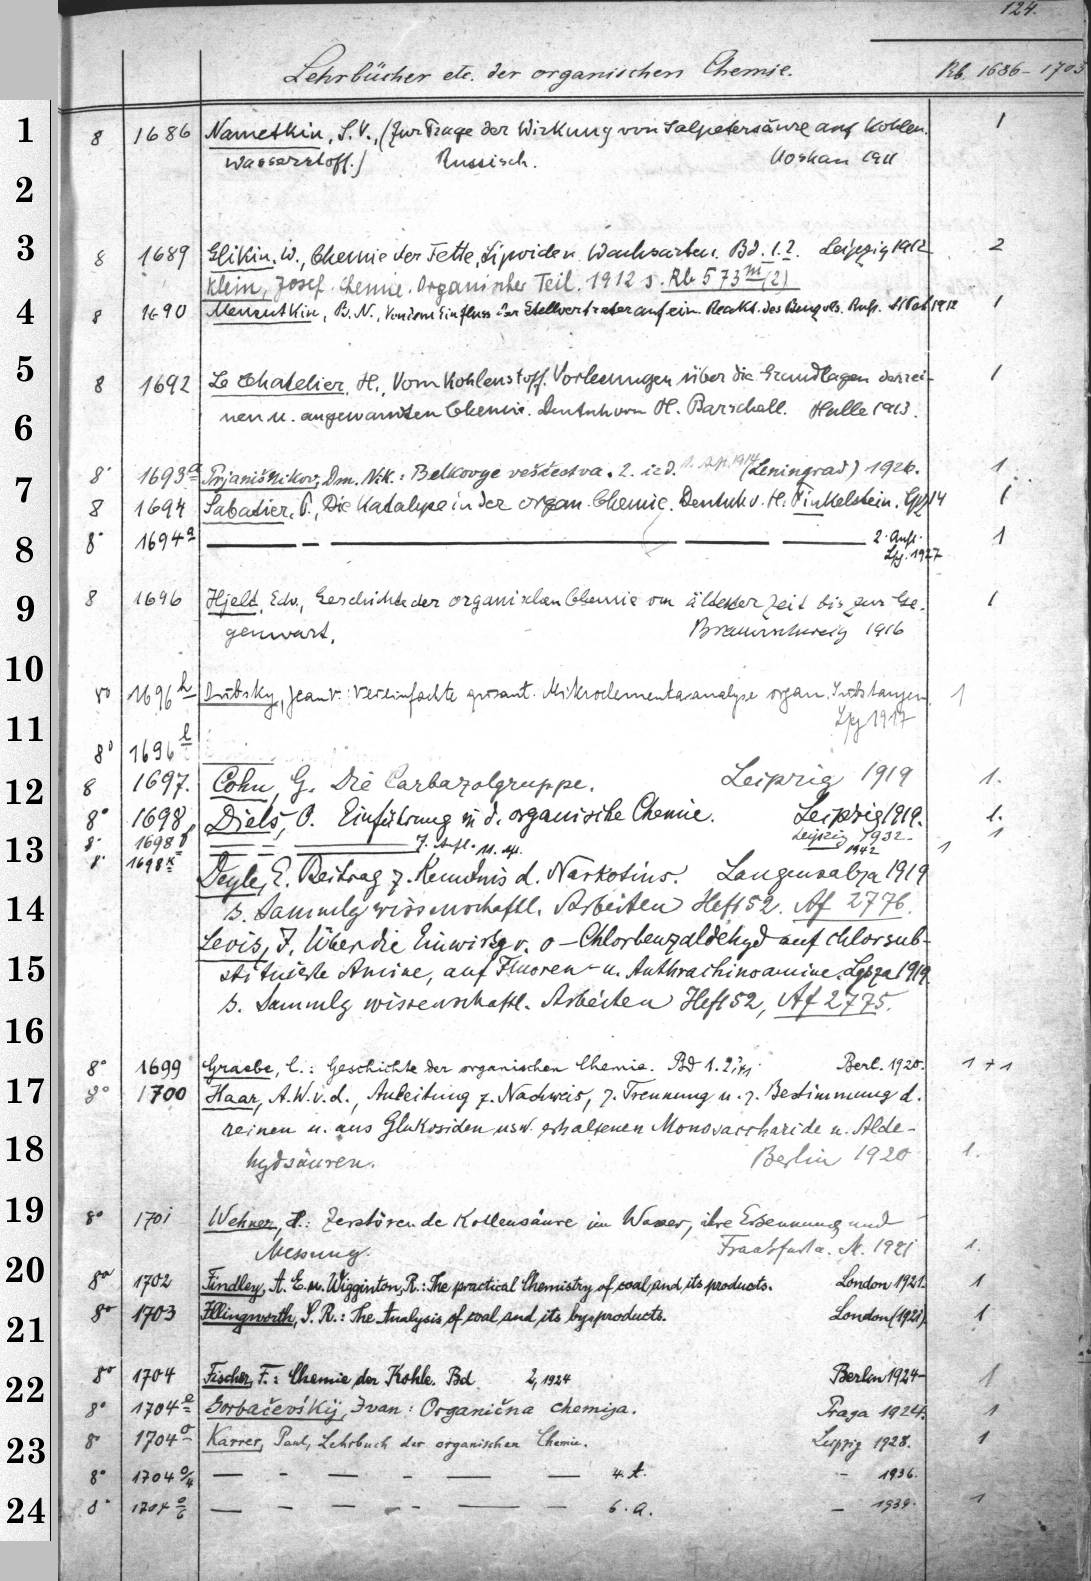 124.
Lehrbücher etc. der organischen Chemie. Rb. 1686-1703
1 8 1686 Nametkin, S. V., (Zur Frage der Wirkung von Salpetersäure auf Kohlen- 1
wasserstoff.) Russisch. Moskau 1911
2
3 8 1689 Glikin, W., Chemie der Fette, Lipoide u. Wachsarten. Bd. 1.2. Leipzig 1912 2
Klein, Josef. Chemie. Organischer Teil. 1912 s. Rb 573m(2)
4 8 1690 Menzutkin, B. N., Von dem Einfluss der Stellvertreter auf ein. Reakt. des Benzols. Russ. St Pet. 1912 1
5 8 1692 Le Chatelier, H., Vom Kohlenstoff. Vorlesungen über die Grundlagen der rei- 1
6 nen u. angewandten Chemie. Deutsch von H. Barschall. Halle 1913.
8° 1693a Prjanišnikov, Dm. Nik.: Belkovye veščestva. 2. izd. (Leningrad) 1926. 1
7 8 1694 Sabatier, P., Die Katalyse in der organ. Chemie. Deutsch v. H. Finkelstein. Lpz 14 1
8 8° 1694a — — — — — 2. Aufl. 1
Lpz. 1927
9 8 1696 Hjelt, Edv., Geschichte der organischen Chemie von ältester Zeit bis zur Ge- 1
genwart. Braunschweig 1916
10 8° 1696h Dubsky, Jean V.: Vereinfachte quant. Mikroelementaranalyse organ. Substanzen 1
11 Lpz 1917
8° 1696l
12 8 1697. Cohn, G. Die Carbazolgruppe. Leipzig 1919 1.
8° 1698 Diels, O. Einführung in d. organische Chemie. Leipzig 1919. 1.
13 8° 1698f — — — 7. Aufl. Leipzig 1932. 1
8° 1698k 1942 1
Deyle, E. Beitrag z. Kenntnis d. Narkotins. Langensalza 1919
14 s. Sammlg wissenschaftl. Arbeiten Heft 52. Af 2776.
Levis, J. Über die Einwirkg v. o-Chlorbenzaldehyd auf chlorsub-
15 stituierte Amine, auf Fluoren- u. Anthrachinoamine. Lgsza 1919.
s. Sammlg wissenschaftl. Arbeiten Heft 52, Af 2775.
16
8° 1699 Graebe, C.: Geschichte der organischen Chemie. Bd 1. 2 Berl. 1920. 1+1
17 8° 1700 Haar, A. W. v. d., Anleitung z. Nachweis, z. Trennung u. z. Bestimmung d.
reinen u. aus Glukosiden usw. erhaltenen Monosaccharide u. Alde-
18 hydsäuren. Berlin 1920 1.
19 8° 1701 Wehner, H.: Zerstörende Kohlensäure im Wasser, ihre Erkennung und
Messung. Frankfurt a. M. 1921 1.
20 8° 1702 Findley, A. E. u. Wigginton, R.: The practical Chemistry of coal and its products. London 1921. 1
21 8° 1703 Illingworth, S. R.: The Analysis of coal and its byproducts. London (1921) 1
22 8° 1704 Fischer, F.: Chemie der Kohle. Bd 2, 1924 Berlin 1924- 1
8° 1704e Gorbačevśkij, Ivan: Organična chemija. Praga 1924. 1
23 8° 1704o Karrer, Paul, Lehrbuch der organischen Chemie. Leipzig 1928. 1
8° 1704o/4 — - — - — — 4. A. - 1936.
24 8° 1704o/6 — - — - - — — 6. A. — 1939. 1